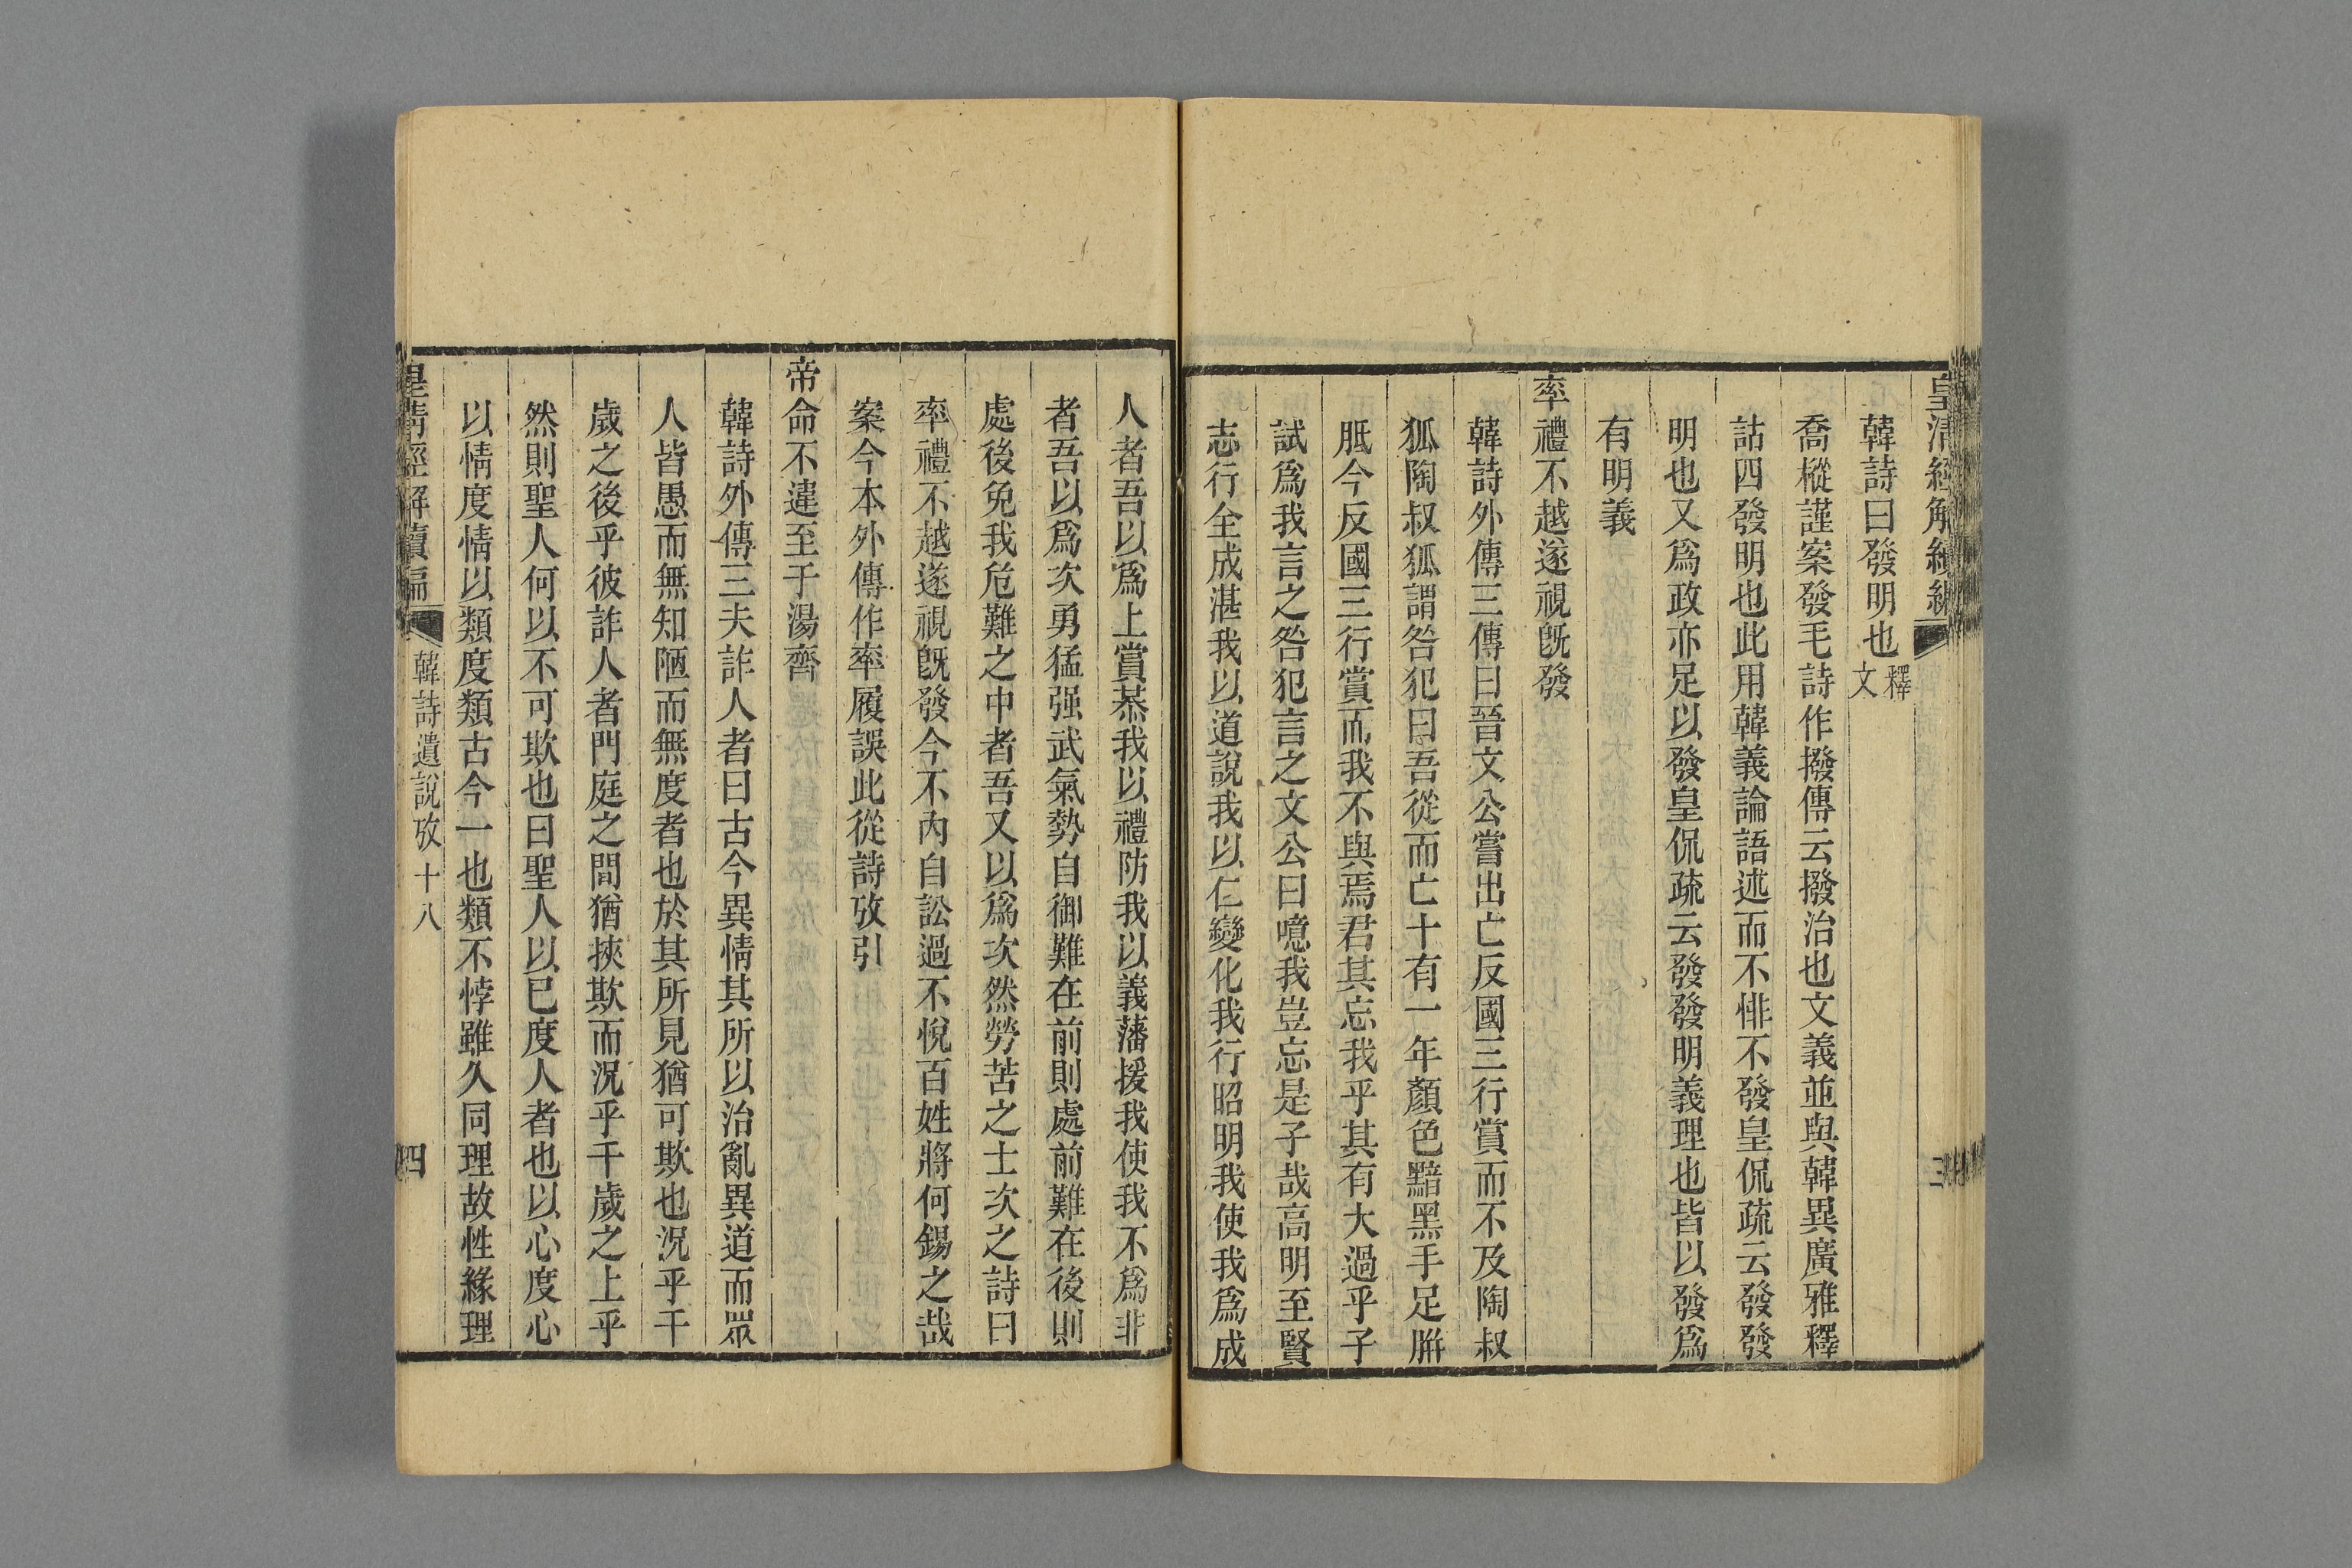 皇清經解續編
三
韓詩曰發明也釋文
喬樅謹案發毛詩作撥傳云撥治也文義並與韓異廣雅釋
詁四發明也此用韓義論語述而不悱不發皇侃疏云發發
明也又爲政亦足以發皇侃疏云發發明義理也皆以發爲
有明義
率禮不越遂視旣發
韓詩外傳三傳曰晉文公嘗出亡反國三行賞而不及陶叔
狐陶叔狐謂咎犯曰吾從而亡十有一年顏色黯黑手足胼
胝今反國三行賞而我不與焉君其忘我乎其有大過乎子
試爲我言之咎犯言之文公曰噫我豈忘是子哉高明至賢
志行全成湛我以道說我以仁變化我行昭明我使我爲成
人者吾以爲上賞恭我以禮防我以義藩援我使我不爲非
者吾以爲次勇猛强武氣勢自御難在前則處前難在後則
處後免我危難之中者吾又以爲次然勞苦之士次之詩曰
率禮不越遂視旣發今不內自訟過不悅百姓將何錫之哉
案今本外傳作率履誤此從詩攷引
帝命不違至于湯齊
韓詩外傳三夫詐人者曰古今異情其所以治亂異道而眾
人皆愚而無知陋而無度者也於其所見猶可欺也況乎千
歲之後乎彼詐人者門庭之間猶挾欺而況乎千歲之上乎
然則聖人何以不可欺也曰聖人以己度人者也以心度心
以情度情以類度類古今一也類不悖雖久同理故性緣理
皇清經解續編
韓詩遺說攷十八
四